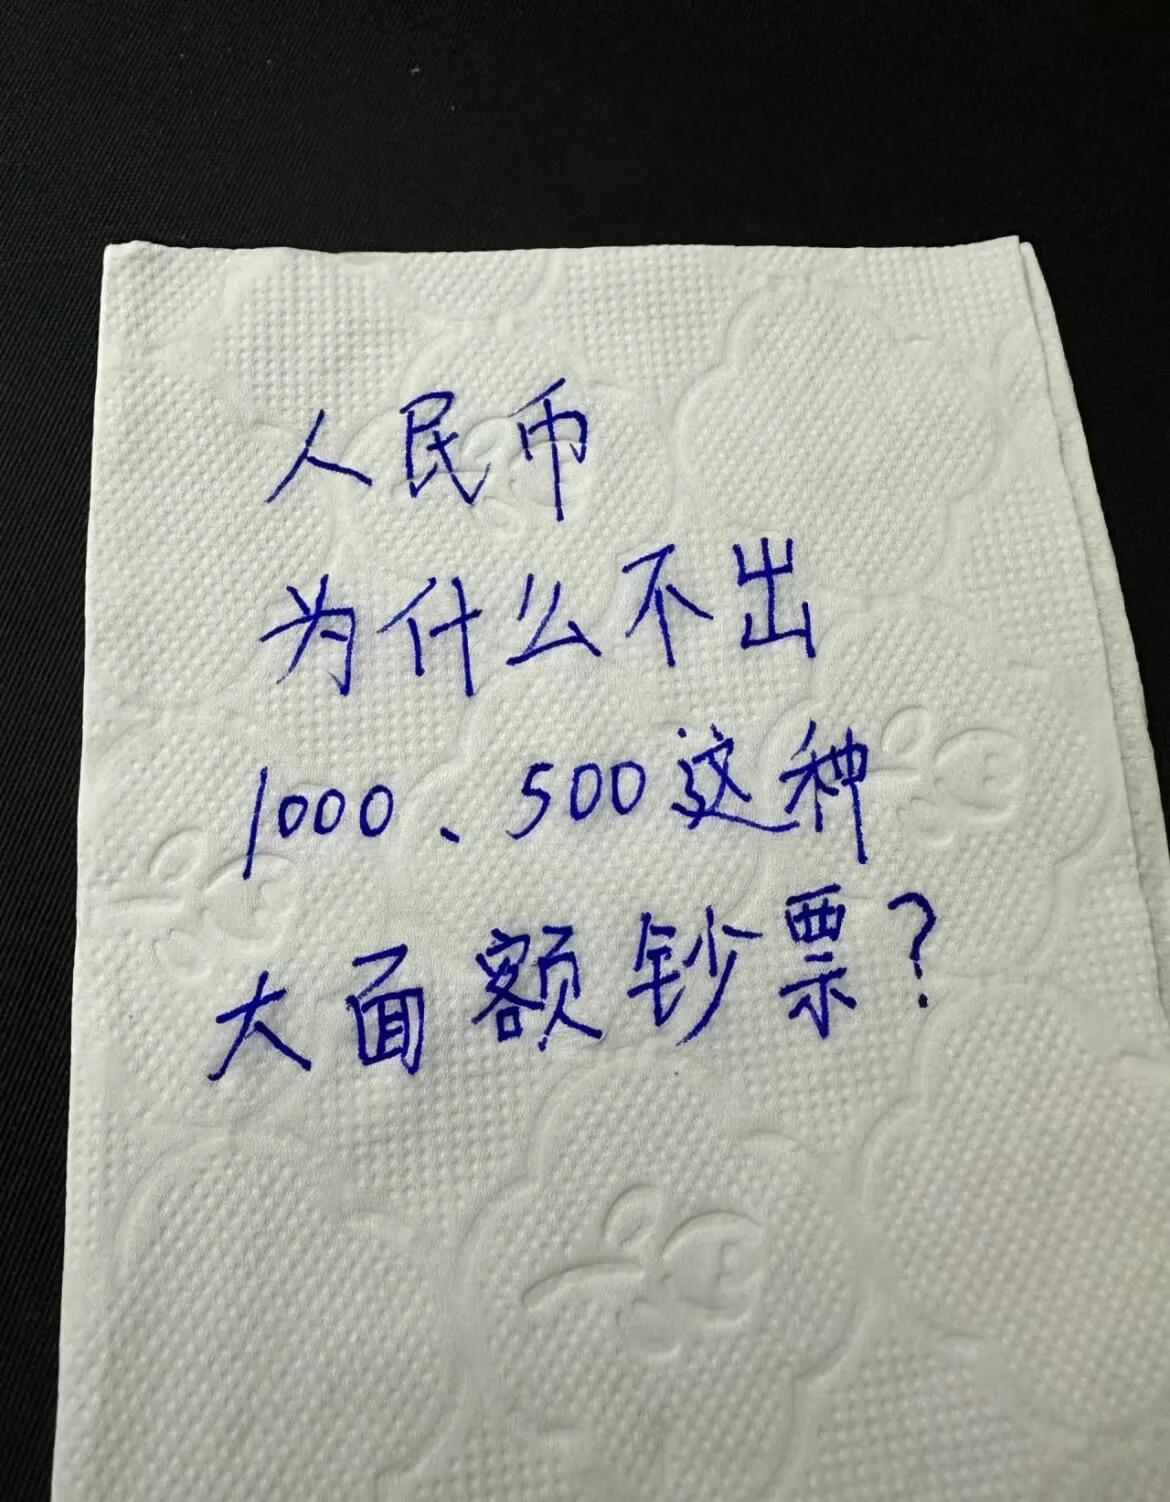 人民币
为什么不出
1000、500这种
大面额钞票?